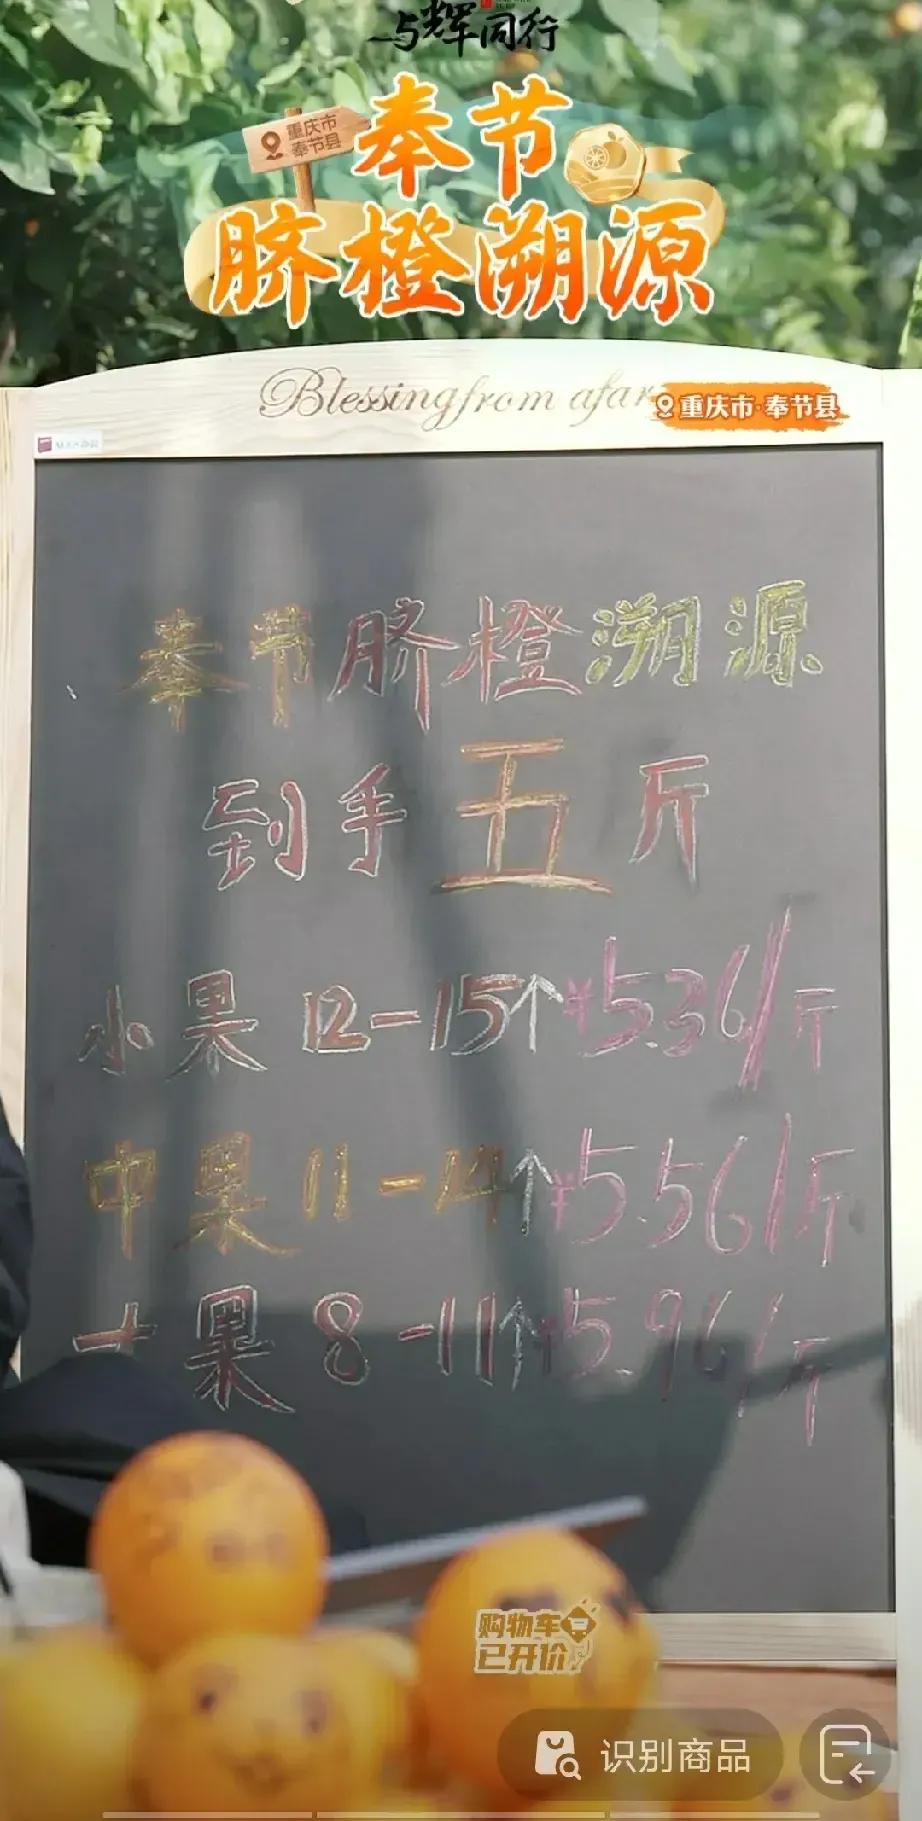 与辉同行
重庆市
奉节县
奉节
脐橙溯源
Blessing from afar
重庆市·奉节县
奉节脐橙溯源
到手五斤
小果 12-15个 ¥5.36/斤
中果 11-14个 ¥5.56/斤
大果 8-11个 ¥5.96/斤
购物车
已开价
识别商品